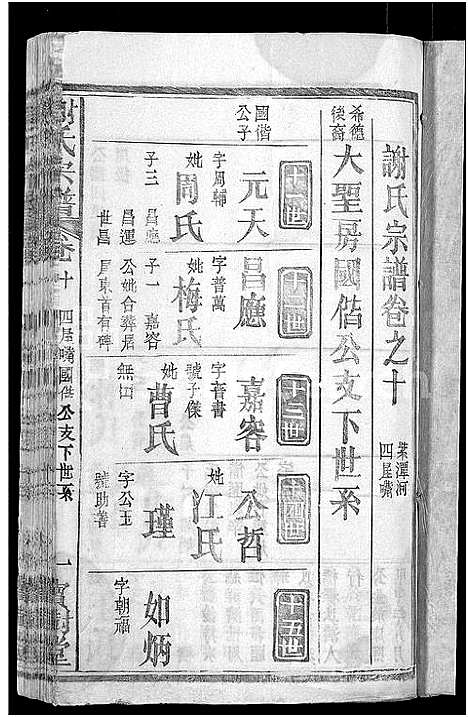 謝氏宗譜卷之十
棠潭河
四屋嘴
希德
後裔
大聖房國偕公支下世系
十一世
十二世
十三世
十四世
十五世
國偕
公子
元天
字周輔
妣周氏
子三
昌應
昌運
世昌
昌應
字普萬
妣梅氏
子一
嘉容
公妣合葬居
屋東首有碑
嘉容
字音書
號子傑
妣曹氏
無出
公哲
妣江氏
瑾
字公玉
號助善
如炳
字朝福
謝氏宗譜
卷十
四屋嘴國偕公支下世系
一
寶樹堂